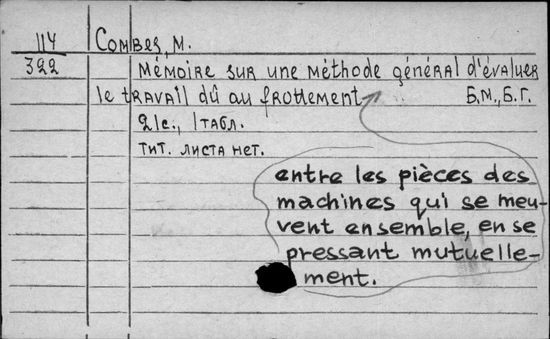 114 Combes, M.
322 Mémoire sur une méthode général d'évaluer
le travail dû au frottement Б.М., Б.Г.
21с., 1 табл.
тит. листа нет.
entre les pièces des
machines qui se meu-
vent ensemble, en se
pressant mutuelle-
ment.